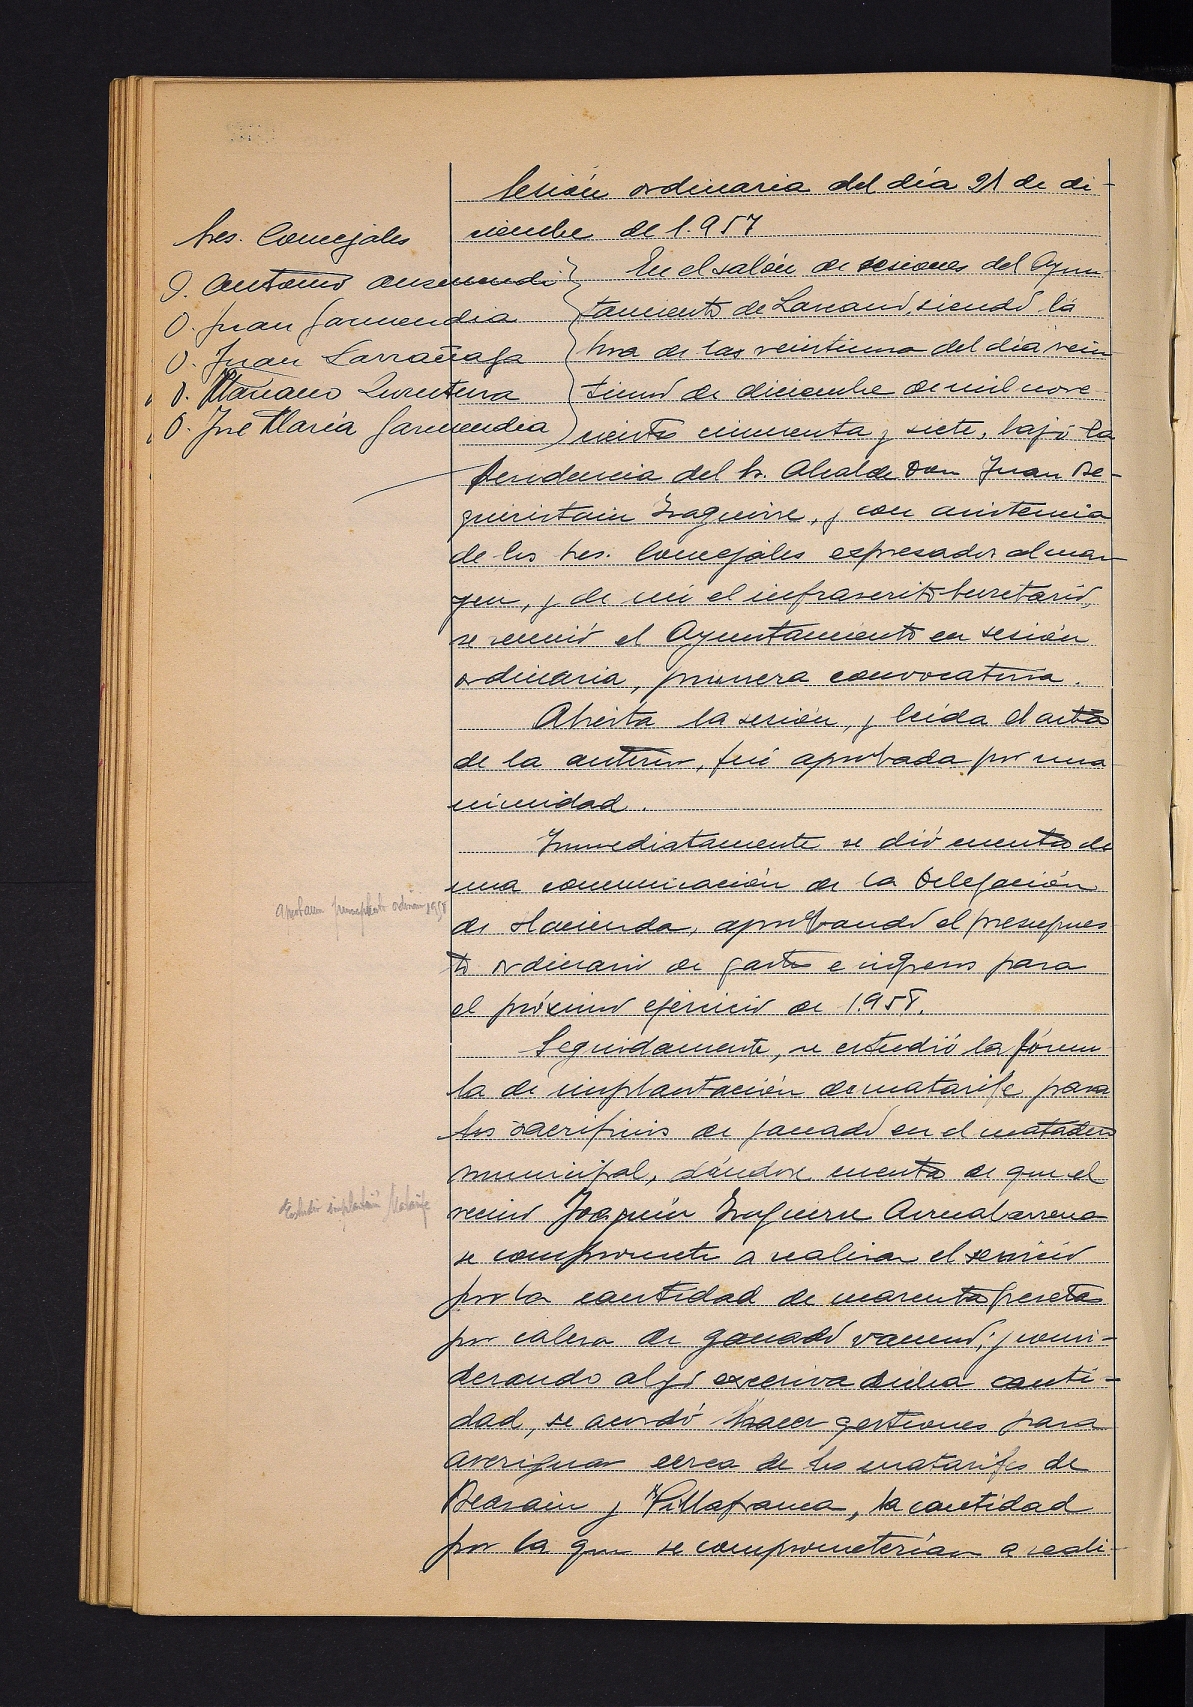 Sesión ordinaria del día 21 de di-
ciembre de 1.957
Sres. Concejales
D. Antonio Ansumendi
D. Juan Garmendia
D. Juan Larrañaga
D. Mariano
D. José María Garmendia
En el salón de sesiones del Ayun
tamiento de siendo la
hora de las veintiuna del día vein
tiuno de diciembre de mil nove
cientos cincuenta y siete, bajo la
Presidencia del Sr. Alcalde Don Juan Be-
guiristain Izaguirre, y con asistencia
de los Sres. Concejales expresados al mar
gen, y de mi el infrascrito Secretario,
se reunió el Ayuntamiento en sesión
ordinaria, primera convocatoria.
Abierta la sesión, y leída el acta
de la anterior, fué aprobada por una
nimidad.
Inmediatamente se dió cuenta de
una comunicación de la Delegación
de Hacienda, aprobando el presupues
to ordinario de gastos e ingresos para
el próximo ejercicio de 1.958.
Seguidamente, se estudió la fórmu
la de implantación de matarife para
los sacrificios de ganado en el matadero
municipal, dándose cuenta de que el
vecino Joaquín Izaguirre Arruabarrena
se compromete a realizar el servicio
por la cantidad de cuarenta pesetas
por cabeza de ganado vacuno; y consi-
derando algo excesiva dicha canti-
dad, se acordó hacer gestiones para
averiguar cerca de los matarifes de
Beasain y Villafranca, la cantidad
por la que se comprometerían a reali-
Aprobación presupuesto ordinario 1958
Estudio implantación Matarife